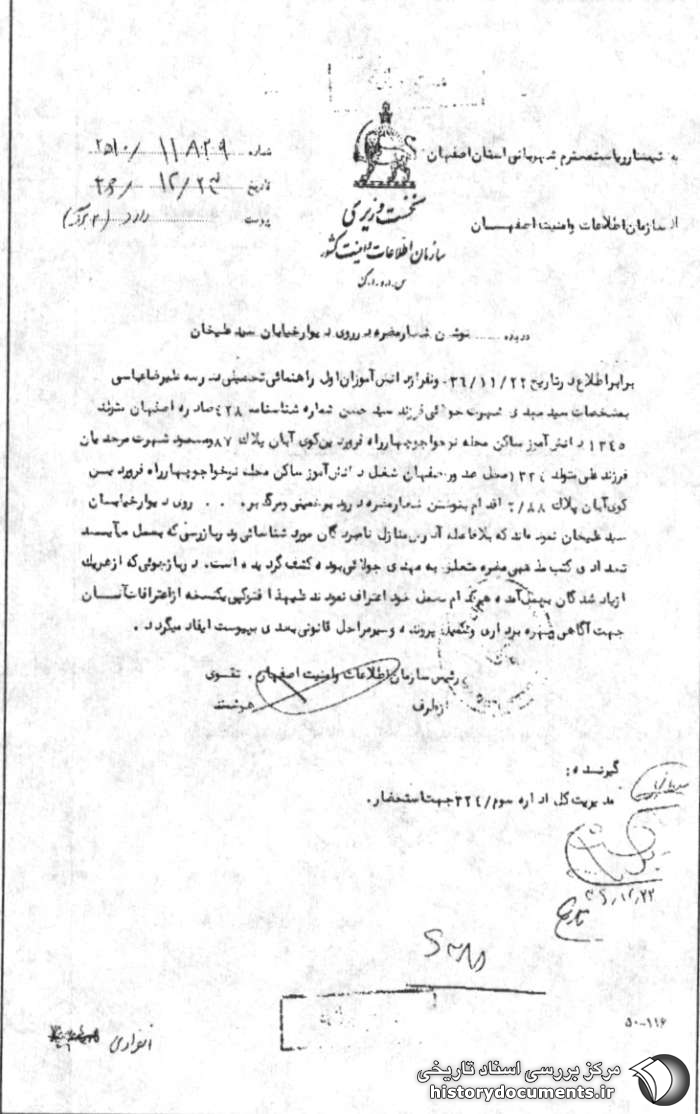 به تیمسار ریاست محترم شهربانی استان اصفهان
از سازمان اطلاعات و امنیت اصفهان
نخست وزیری
سازمان اطلاعات و امنیت کشور
س.ا.و.ا.ک
شماره ۲۵۱۰/ ۱۱۸۲۹
تاریخ ۳۶/ ۱۲/۲۳
پیوست دارد
درباره نوشتن شعار مضره بر روی دیوار خیابان سید علیخان
برابر اطلاع در تاریخ ۳۶/۱۱/۲۲ دو نفر از دانش آموزان اول راهنمائی تحصیلی مدرسه علیرضا عباسی
بمشخصات سید مهدی شهرت جولائی فرزند سید حسن شماره شناسنامه ۴۲۸ صادره اصفهان متولد
۱۳۴۵ دانش آموز ساکن محله نوخواجو چهارراه فروردین کوی آبان پلاک ۸۷ و مسعود شهرت
فرزند علی متولد صادره اصفهان شغل دانش آموز ساکن محله نوخواجو چهارراه فروردین
کوی آبان پلاک ۲/۸۸ اقدام بنوشتن شعار مضره درود بر خمینی و مرگ بر . . . روی دیوار خیابان
سید علیخان نموده اند که بلافاصله آدرس منازل نامبردگان مورد شناسائی و در بازرسی که بعمل می‌آید
تعدادی کتب مذهبی مضره متعلق به مهدی جولائی بوده کشف گردیده است. در بازجوئی که از هریک
از یاد شدگان بعمل آمده هرکدام بعمل خود اعتراف نمودند علیهذا فتوکپی یکنسخه از اعترافات آنان
جهت آگاهی و بهره برداری و تکمیل پرونده و سیر مراحل قانونی بعدی بپیوست ایفاد میگردد.
رئیس سازمان اطلاعات و امنیت اصفهان. تقوی
از طرف هوشمند
گیرنده:
مدیریت کل اداره سوم/۳۲۴ جهت استحضار.
۳۶/۱۲/۲۳
۵۰-۱۱۶
مرکز بررسی اسناد تاریخی
historydocuments.ir